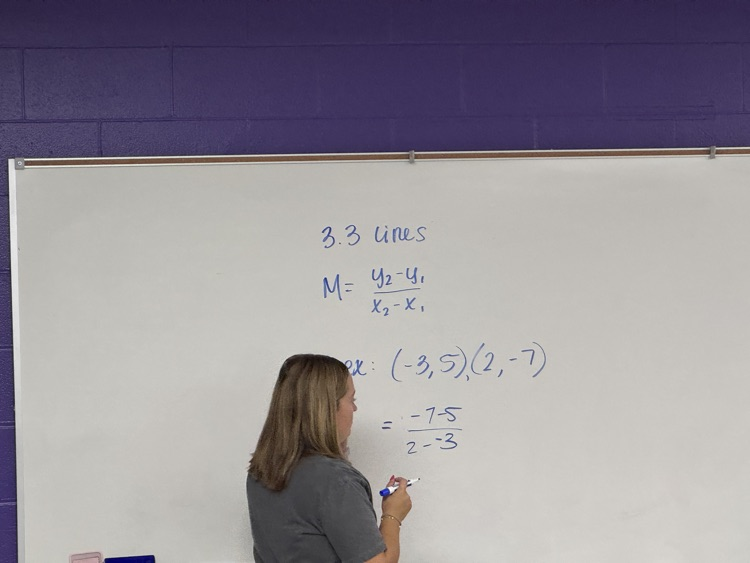 3.3 lines
M = y₂ - y₁ / x₂ - x₁
ex: (-3, 5), (2, -7)
= -7-5 / 2--3